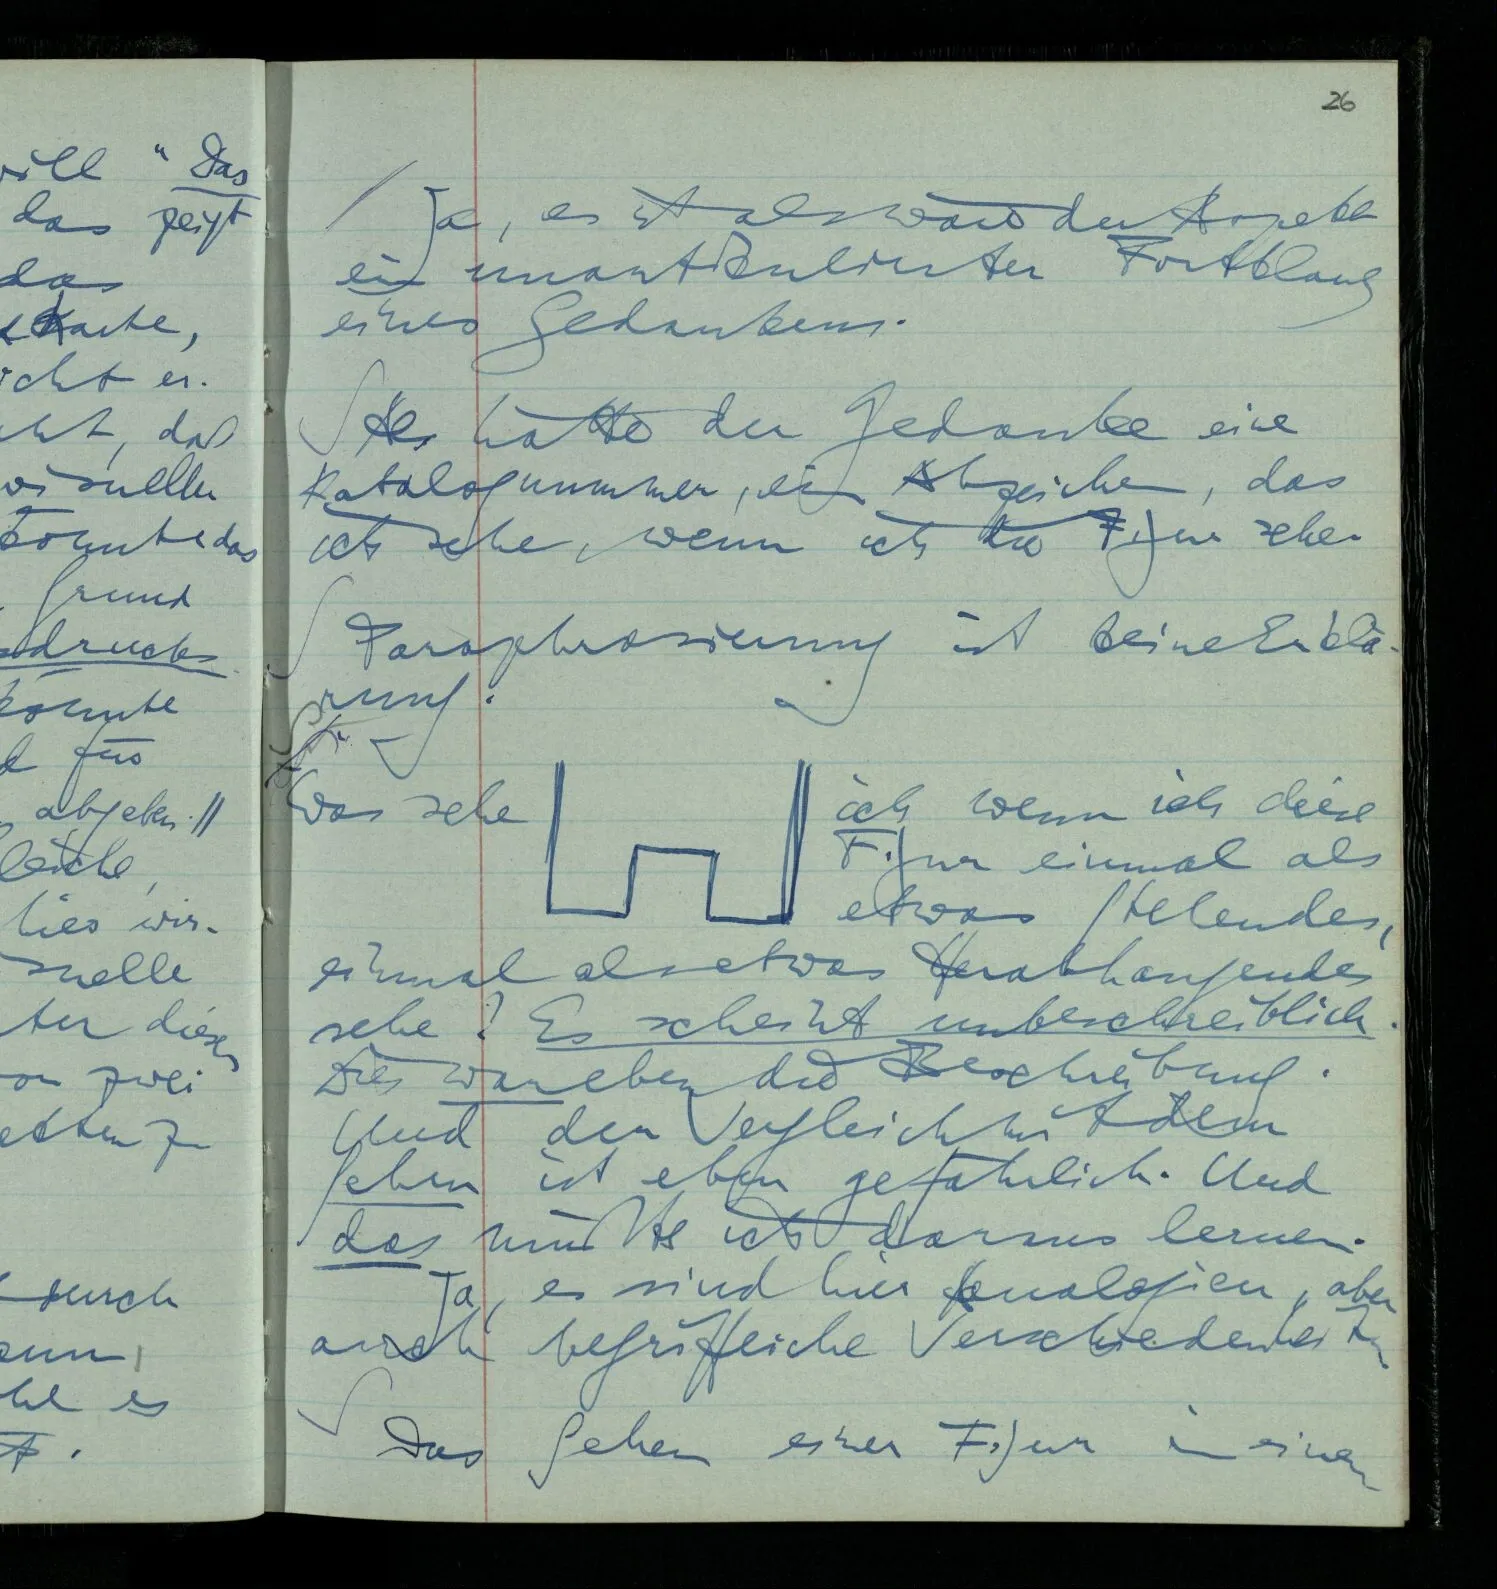 26
will "Das
das zeigt
das
Karte,
nicht er.
, daß
visuellen
konnte das
Grund
drucks
konnte
für
abgeben.//
leiche,
dies wir-
suelle
ter dieser
von zwei
durch
ann,
es
/ Ja, es ist als wäre der Aspekt
ein unartikulierter Fortklang
eines Gedankens.
Als hätte der Gedanke eine
Katalognummer, ein Abzeichen, das
ich sehe, wenn ich die Figur sehe.
Paraphrasierung ist keine Erklä-
rung.
Was sehe ich wenn ich diese
Figur einmal als
etwas Stehendes,
einmal als etwas Herabhangendes
sehe? Es scheint unbeschreiblich.
Dies war eben die Beschreibung.
Und der Vergleich mit dem
Sehen ist eben gefährlich. Und
das müßte ich daraus lernen.
Ja, es sind hier Analogien, aber
auch begriffliche Verschiedenheiten
Das Sehen einer Figur in einer